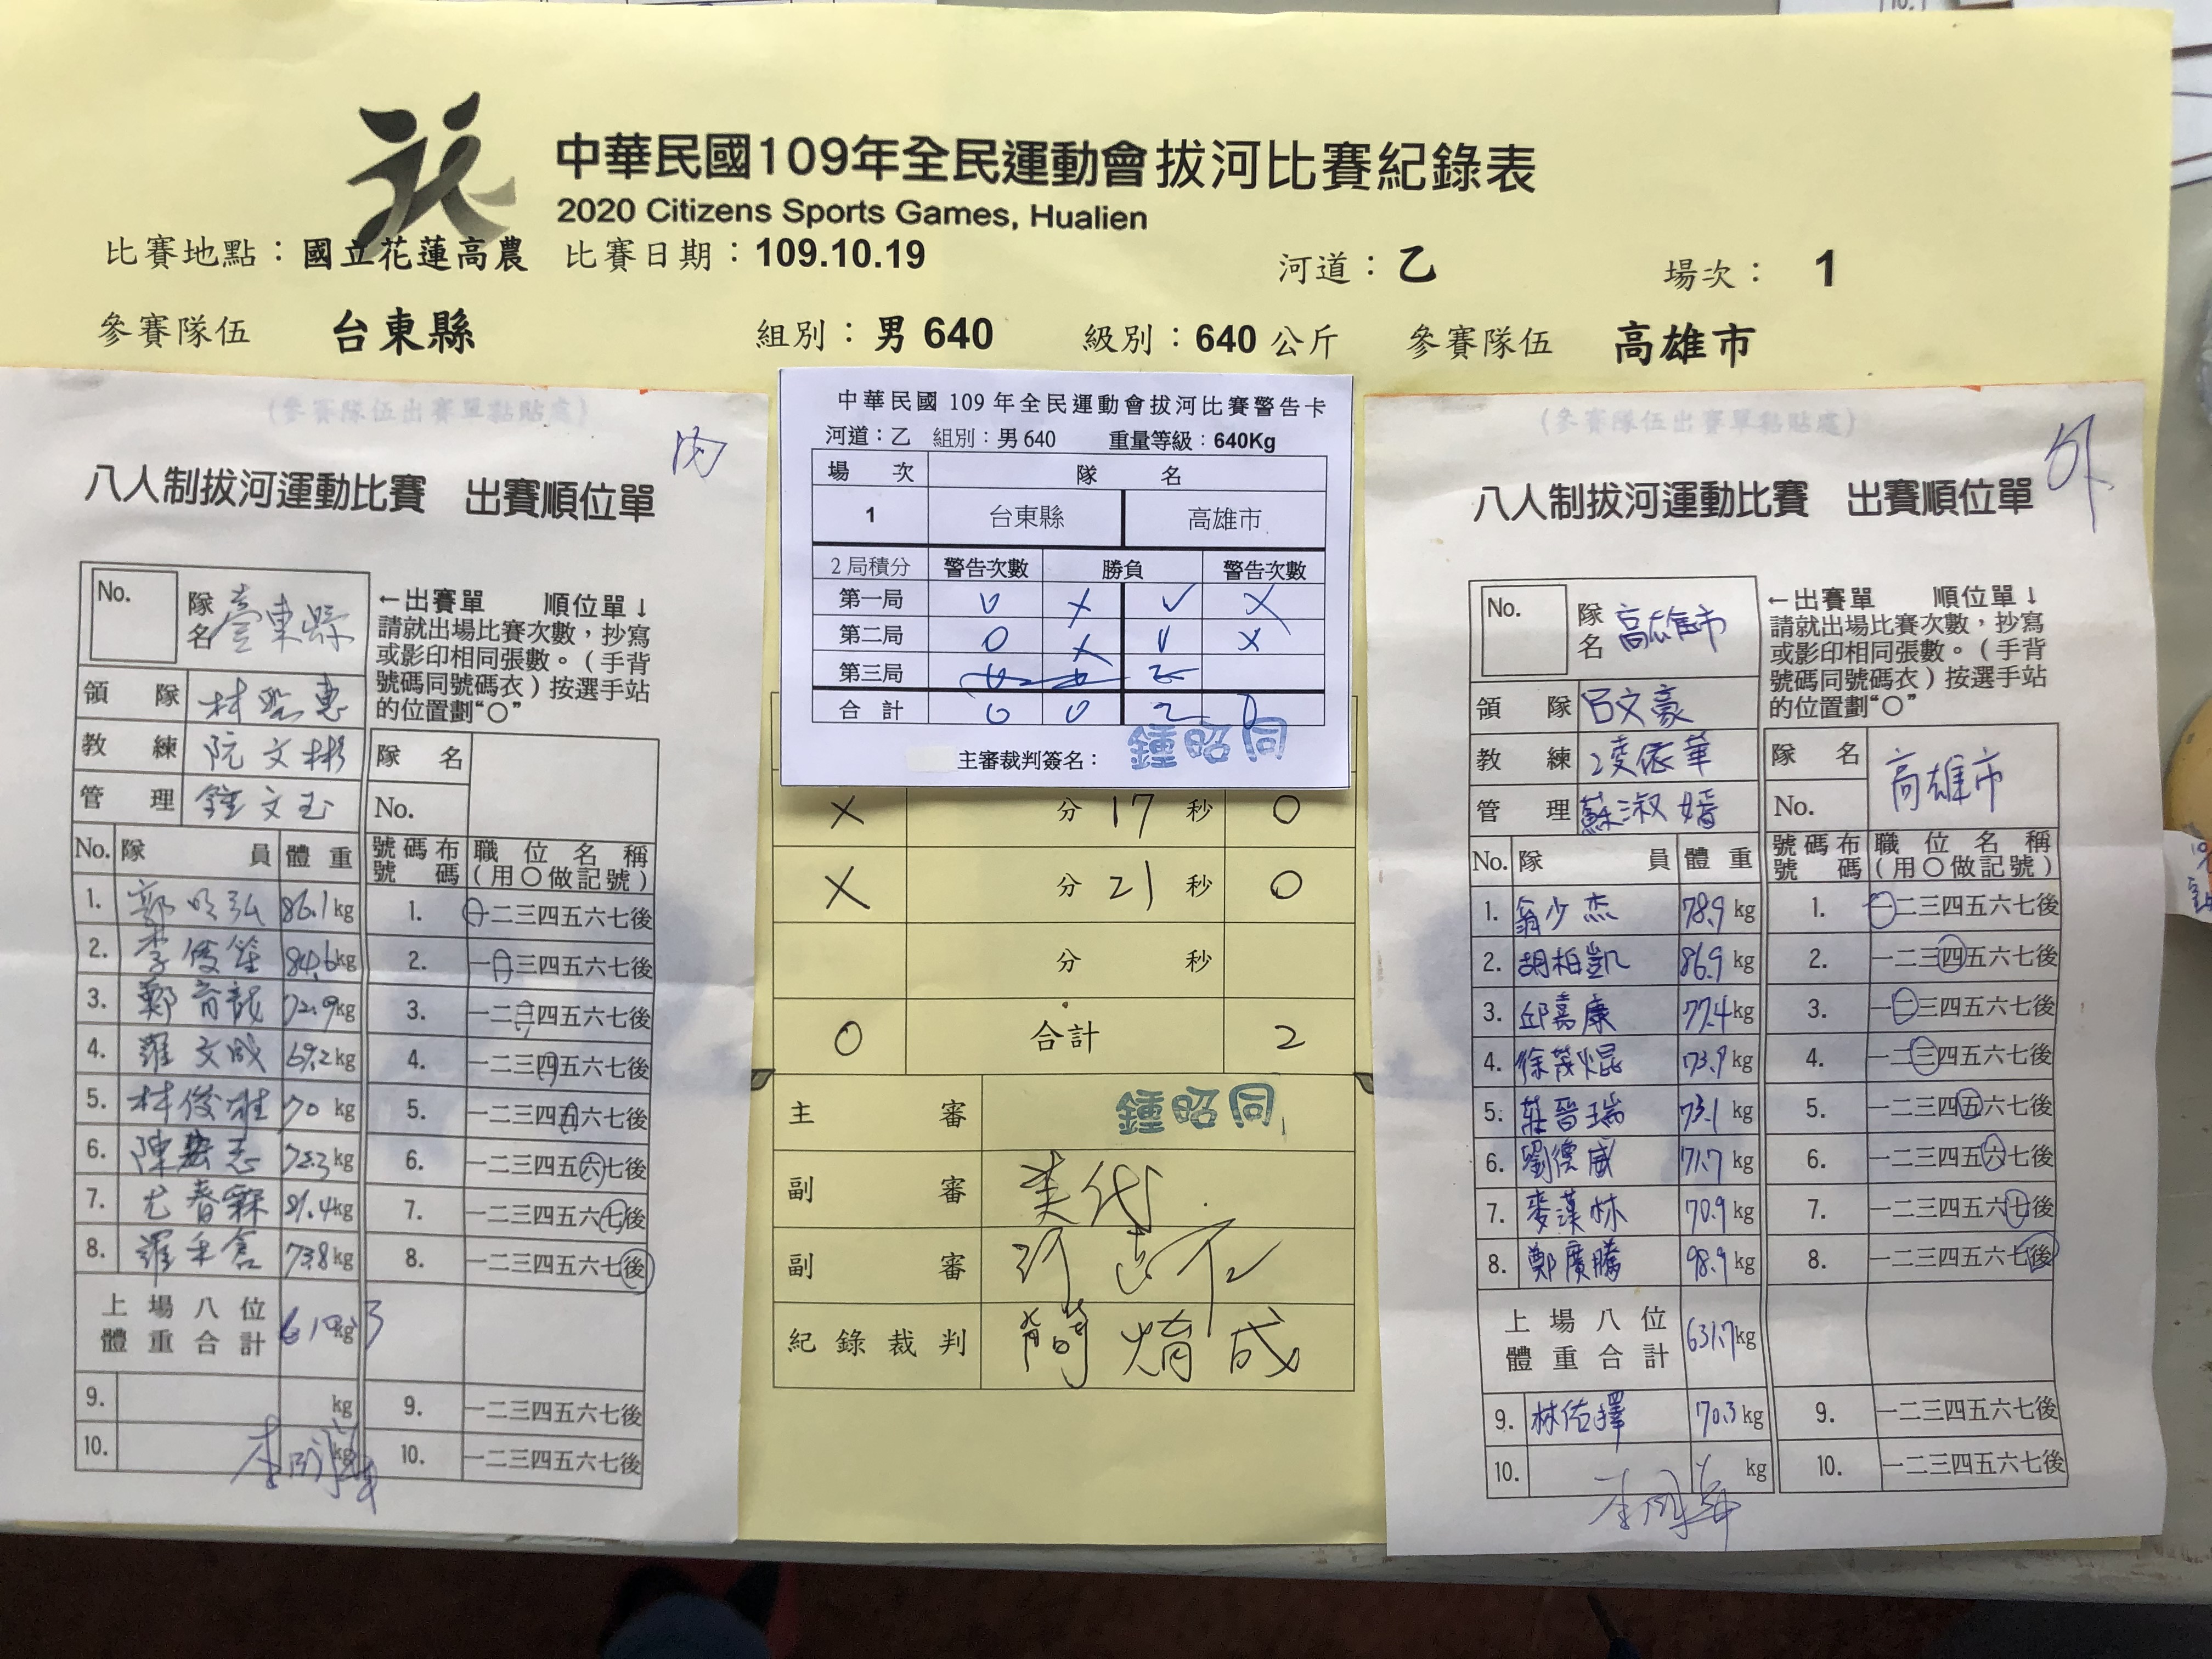 中華民國109年全民運動會拔河比賽紀錄表
2020 Citizens Sports Games, Hualien
比賽地點：國立花蓮高農 比賽日期：109.10.19 河道：乙 場次： 1
參賽隊伍 台東縣 組別：男 640 級別：640 公斤 參賽隊伍 高雄市
(參賽隊伍出賽單黏貼處)
內
八人制拔河運動比賽 出賽順位單
No. 隊名 臺東縣
←出賽單 順位單↓
請就出場比賽次數，抄寫
或影印相同張數。（手背
號碼同號碼衣）按選手站
的位置劃“○”
領隊
教練 阮文彬
管理 鍾文
隊名
No.
No. 隊員 體重 號碼布號碼 職位名稱(用○做記號)
1. 郭 弘 86.1 kg 1. 一二三四五六七後
2. 李俊 84.6 kg 2. 一二三四五六七後
3. 鄭育 72.9 kg 3. 一二三四五六七後
4. 羅文成 69.2 kg 4. 一二三四五六七後
5. 林俊雄 70 kg 5. 一二三四五六七後
6. 陳宏志 72.3 kg 6. 一二三四五六七後
7. 尤春霖 81.4 kg 7. 一二三四五六七後
8. 羅 73.8 kg 8. 一二三四五六七後
上場八位體重合計 kg
9. kg 9. 一二三四五六七後
10. kg 10. 一二三四五六七後
中華民國 109 年全民運動會拔河比賽警告卡
河道：乙 組別：男 640 重量等級：640Kg
場次 隊名
1 台東縣 高雄市
2 局積分 警告次數 勝負 警告次數
第一局 0 X ✓ X
第二局 0 X ✓ X
第三局
合計 0 0 2 0
主審裁判簽名： 鍾昭同
X 分 17 秒 O
X 分 21 秒 O
分 秒
0 合計 2
主審 鍾昭同
副審
副審
紀錄裁判 簡焴成
(參賽隊伍出賽單黏貼處)
外
八人制拔河運動比賽 出賽順位單
No. 隊名 高雄市
←出賽單 順位單↓
請就出場比賽次數，抄寫
或影印相同張數。（手背
號碼同號碼衣）按選手站
的位置劃“○”
領隊 呂文豪
教練 凌依華
管理 蘇淑嬌
隊名 高雄市
No.
No. 隊員 體重 號碼布號碼 職位名稱(用○做記號)
1. 翁少杰 78.9 kg 1. 一二三四五六七後
2. 胡柏凱 86.9 kg 2. 一二三四五六七後
3. 邱嘉康 77.4 kg 3. 一二三四五六七後
4. 徐茂焜 73.9 kg 4. 一二三四五六七後
5. 莊晉瑞 73.1 kg 5. 一二三四五六七後
6. 劉德威 71.7 kg 6. 一二三四五六七後
7. 麥漢林 70.9 kg 7. 一二三四五六七後
8. 鄭廣騰 98.9 kg 8. 一二三四五六七後
上場八位體重合計 631.7 kg
9. 林佑擇 70.3 kg 9. 一二三四五六七後
10. kg 10. 一二三四五六七後